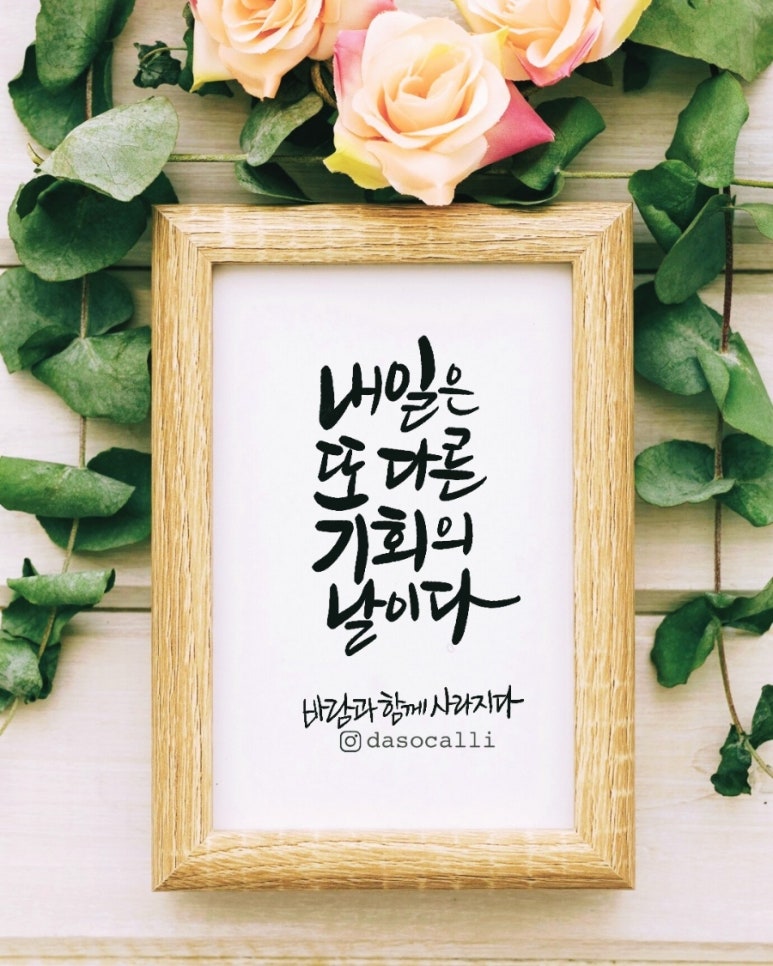 내일은
또 다른
기회의
날이다
바람과 함께 사라지다
dasocalli